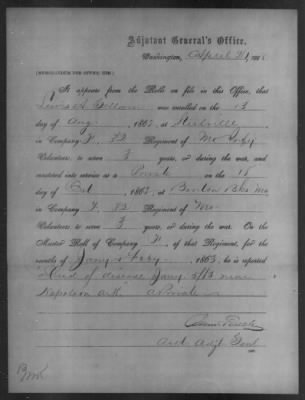 Adjutant General's Office,
Washington, April 21, 186
[MEMORANDUM FOR OFFICE USE.]
It appears from the Rolls on file in this Office, that
was enrolled on the 13
day of Aug, 1862, at Steelville
in Company F, 32 Regiment of Mo
Volunteers, to serve 3 years, or during the war, and
mustered into service as a Private on the 18
day of Oct, 1862, at Benton Bks Mo
in Company F, 32 Regiment of Mo
Volunteers, to serve 3 years, or during the war. On the
Muster Roll of Company F, of that Regiment, for the
months of Jany & Feby, 1863, he is reported
"Died of disease Jany 3/63 near
Napoleon Ark" a Private
Asst Adjt Genl